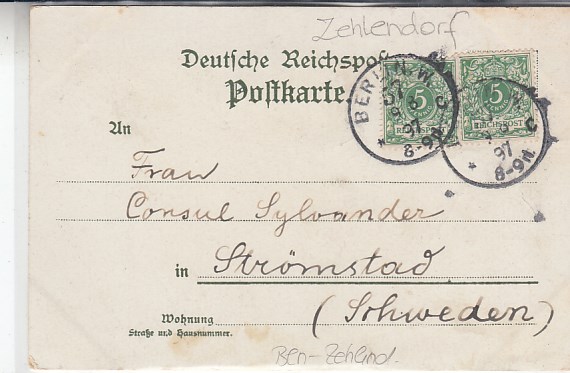 Zehlendorf
Deutsche Reichspost
Postkarte.
5
REICHSPOST
5
REICHSPOST
BERLIN. W.
57
97
8-9N.
C
97
8-9N.
An
Frau
Consul Sylvander
in Strömstad
(Schweden)
Wohnung
Straße und Hausnummer.
Ben-Zehlnd.